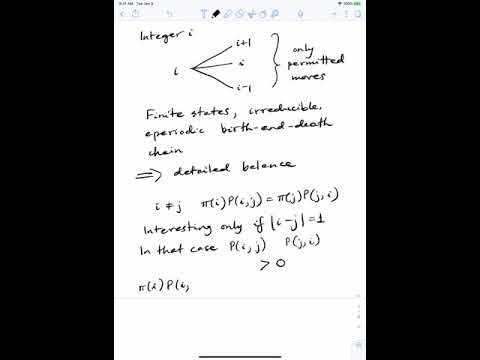 Integer i
i+1
i
i
i-1
only
permitted
moves
Finite states, irreducible,
aperiodic birth-and-death
chain
⟹ detailed balance
i ≠ j π(i)P(i,j) = π(j)P(j,i)
Interesting only if |i-j| = 1
In that case P(i,j) P(j,i)
> 0
π(i)P(i,